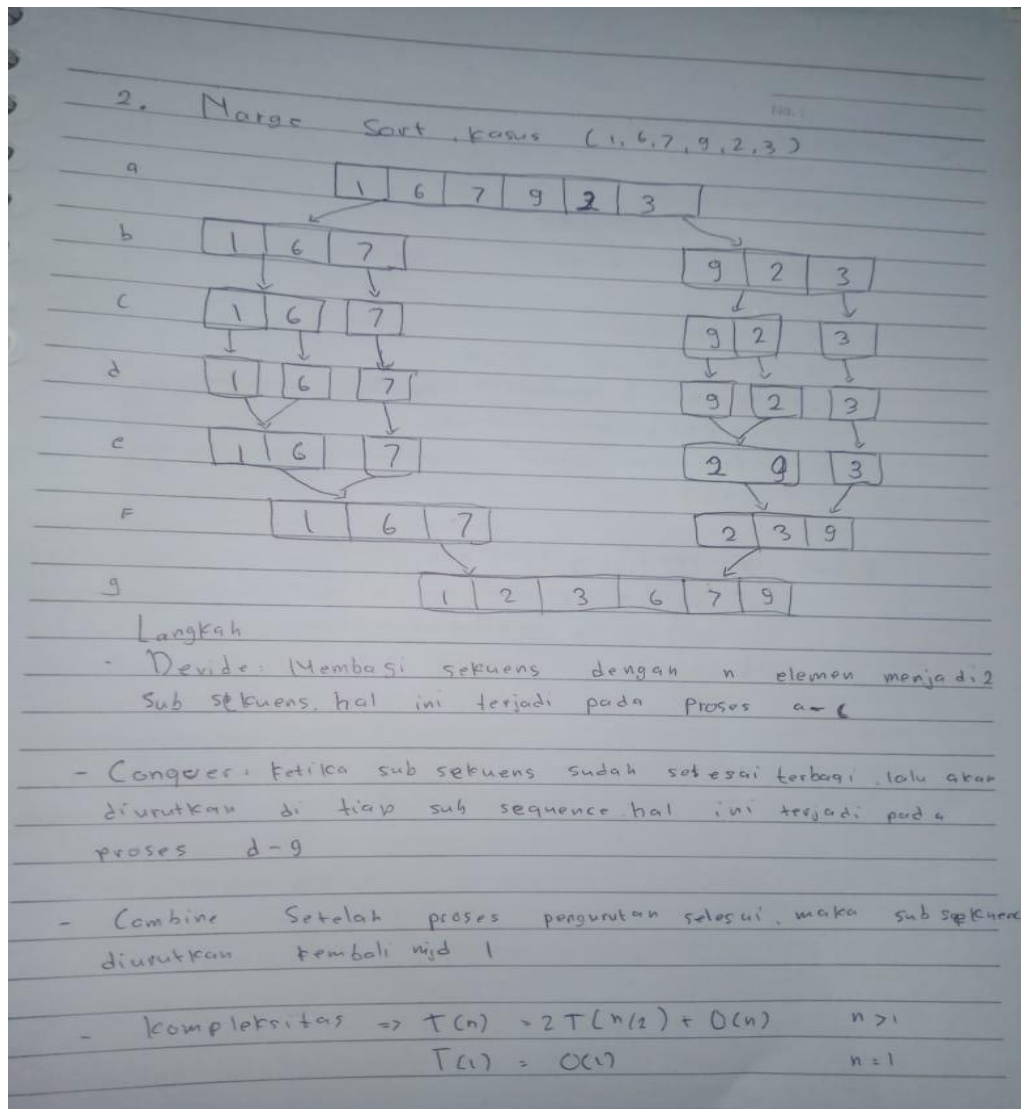 No. :
2. Marge Sort. kasus (1, 6, 7, 9, 2, 3)
a 1 6 7 9 2 3
b 1 6 7 9 2 3
c 1 6 7 9 2 3
d 1 6 7 9 2 3
e 1 6 7 2 9 3
F 1 6 7 2 3 9
g 1 2 3 6 7 9
Langkah
- Devide : Membagi sekuens dengan n elemen menjadi 2
sub sekuens. hal ini terjadi pada proses a-c
- Conquer : ketika sub sekuens sudah selesai terbagi. lalu akan
diurutkan di tiap sub sequence. hal ini terjadi pada
proses d-g
- Combine Setelah proses pengurutan selesai. maka sub sekuens
diurutkan kembali mjd 1
- kompleksitas => T(n) = 2T(n/2) + O(n) n>1
T(1) = O(1) n=1